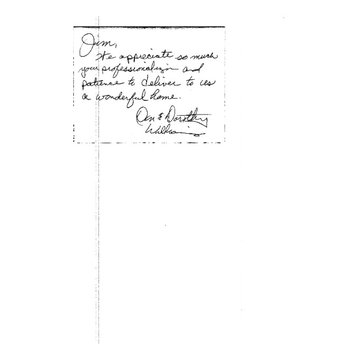 Jim,
We appreciate so much
your professionalism and
patience to deliver to us
a wonderful home.
& Dorothy
Williams